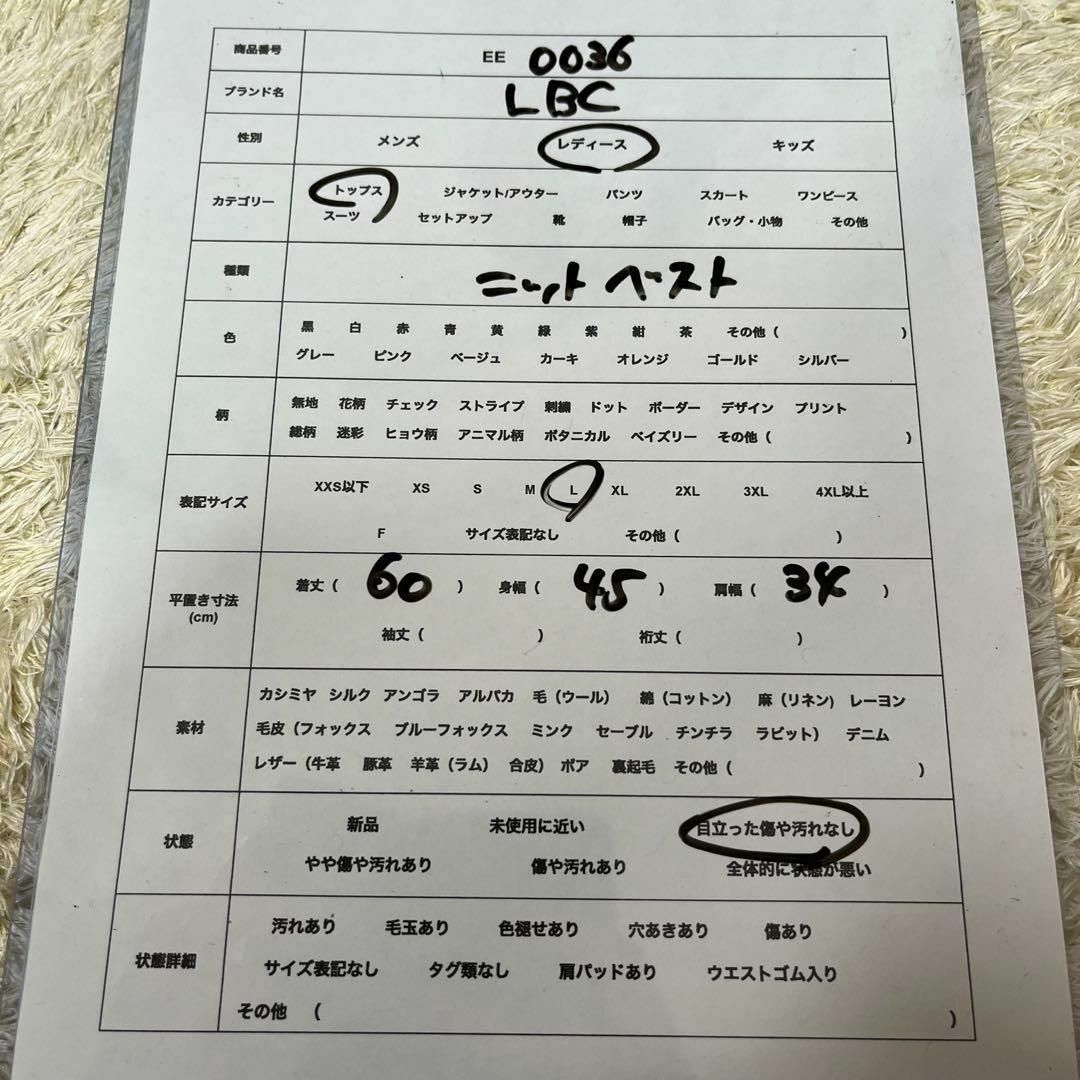 商品番号 EE 0036
ブランド名 LBC
性別 メンズ レディース キッズ
カテゴリー トップス ジャケット/アウター パンツ スカート ワンピース
スーツ セットアップ 靴 帽子 バッグ・小物 その他
種類 ニットベスト
色 黒 白 赤 青 黄 緑 紫 紺 茶 その他 ( )
グレー ピンク ベージュ カーキ オレンジ ゴールド シルバー
柄 無地 花柄 チェック ストライプ 刺繍 ドット ボーダー デザイン プリント
総柄 迷彩 ヒョウ柄 アニマル柄 ボタニカル ペイズリー その他 ( )
表記サイズ XXS以下 XS S M L XL 2XL 3XL 4XL以上
F サイズ表記なし その他 ( )
平置き寸法 (cm) 着丈 ( 60 ) 身幅 ( 45 ) 肩幅 ( 34 )
袖丈 ( ) 裄丈 ( )
素材 カシミヤ シルク アンゴラ アルパカ 毛（ウール） 綿（コットン） 麻（リネン) レーヨン
毛皮（フォックス ブルーフォックス ミンク セーブル チンチラ ラビット） デニム
レザー（牛革 豚革 羊革（ラム） 合皮） ボア 裏起毛 その他 ( )
状態 新品 未使用に近い 目立った傷や汚れなし
やや傷や汚れあり 傷や汚れあり 全体的に状態が悪い
状態詳細 汚れあり 毛玉あり 色褪せあり 穴あきあり 傷あり
サイズ表記なし タグ類なし 肩パッドあり ウエストゴム入り
その他 ( )